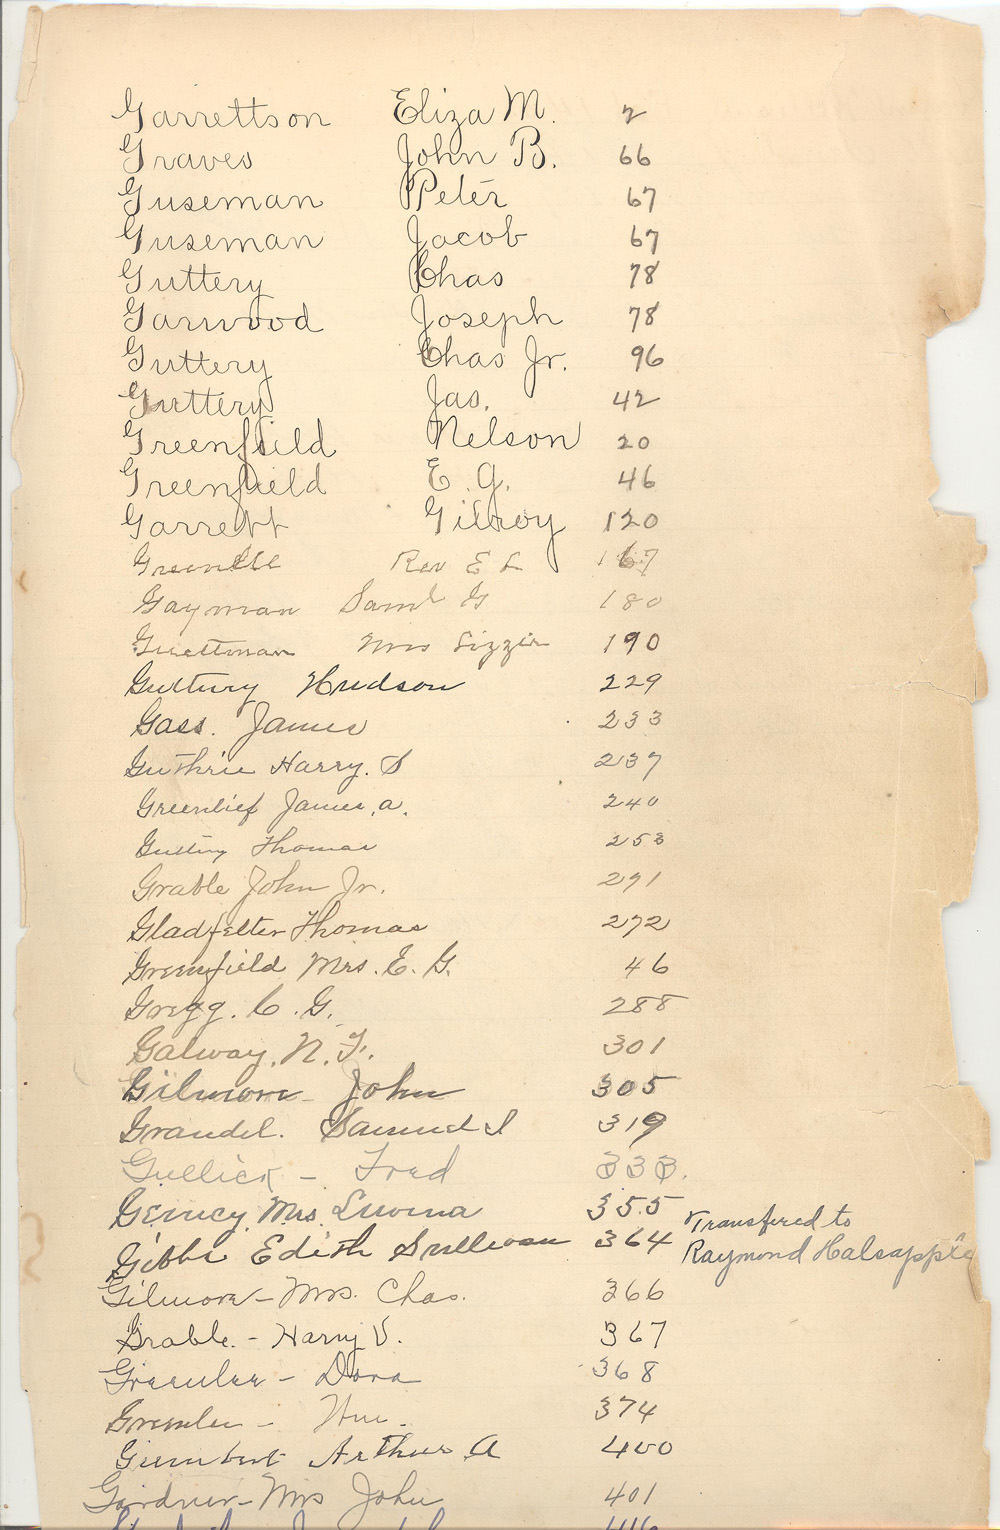 Garrettson Eliza M. 2
Graves John B. 66
Guseman Peter 67
Guseman Jacob 67
Guttery Chas 78
Garwood Joseph 78
Guttery Chas Jr. 96
Guttery Jas. 42
Greenfield Nelson 20
Greenfield E. G. 46
Garrett Gilroy 120
Rev E L 167
Gayman Saml G 180
Mrs Lizzie 190
Guttery Hudson 229
Gass. James 233
Guthrie Harry. S 237
Greenlief James. a. 240
Thomas 253
Grable John Jr. 271
Gladfelter Thomas 272
Greenfield Mrs. E. G. 46
Gregg. C. G. 288
Galway. N. F. 301
Gilmore - John 305
Grandel. Samuel I 319
Gullick - Fred 333.
Geincy, Mrs. Luvina 355
Transfered to
Gibbs Edith Sullivan 364
Raymond Halsapple
Gilmore - Mrs. Chas. 366
Grable. - Harry V. 367
- Dora 368
- Wm. 374
Gumbert Arthur A 400
Gardner - Mrs John 401
416